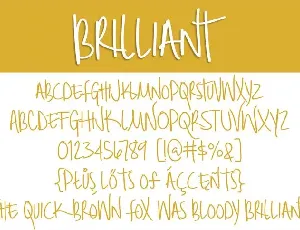 BRILLIANT
ABCDEFGHIJKLMNOPQRSTUVWXYZ
ABCDEFGHIJKLMNOPQRSTUVWXYZ
0123456789 [!@#$%&]
{PLUS LOTS OF ÁÇCENTS}
HE QUICK BROWN FOX WAS BLOODY BRILLIAN